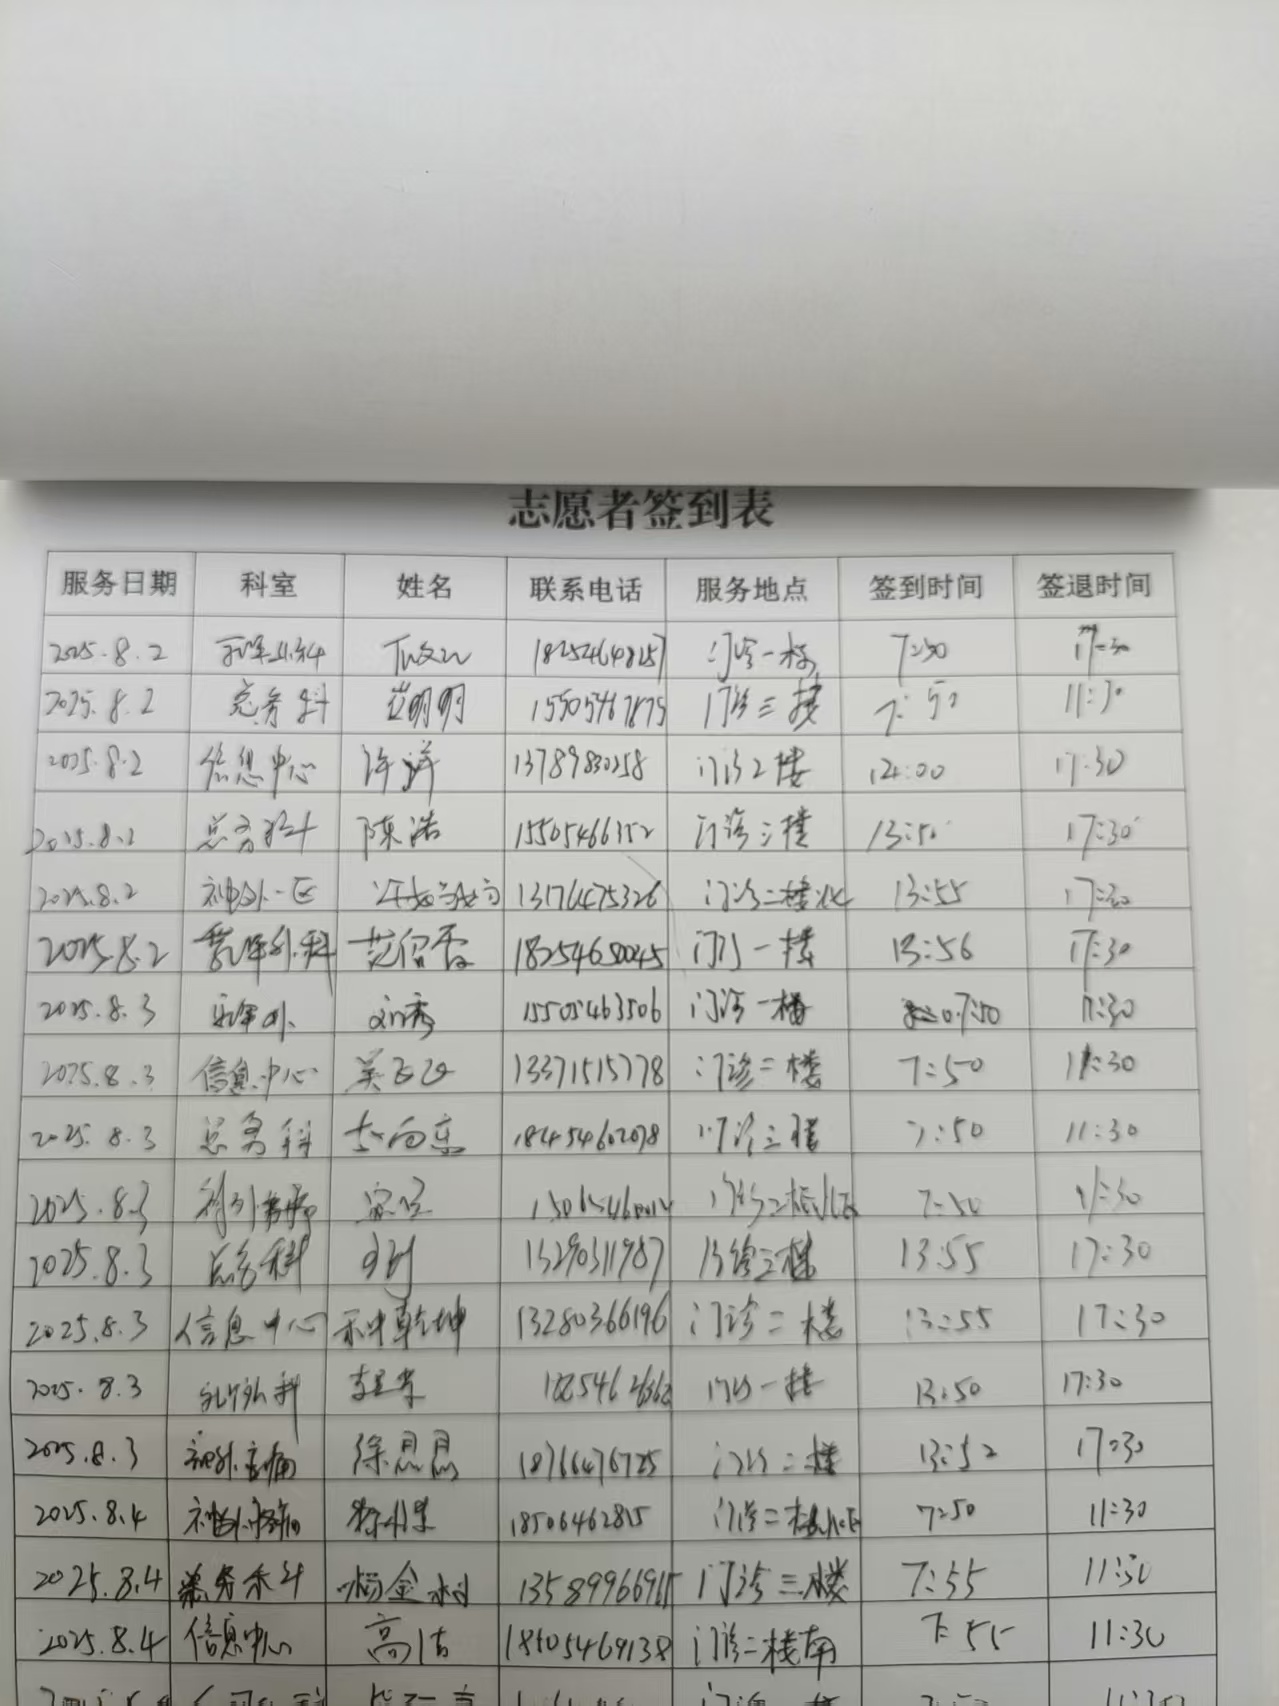 志愿者签到表
服务日期 科室 姓名 联系电话 服务地点 签到时间 签退时间
2025.8.2 18254648257 门诊一楼 7:50 17:30
2025.8.2 总务科 范明明 15505467875 门诊三楼 7:50 11:30
2025.8.2 信息中心 许洋 13789830258 门诊2楼 14:00 17:30
2025.8.2 总务科 陈浩 15505466352 门诊三楼 13:50 17:30
2025.8.2 神外一区 13176475326 门诊二楼北 13:55 17:30
2025.8.2 乳腺外科 18254650045 门诊一楼 13:56 17:30
2025.8.3 乳腺外 刘秀 15505463506 门诊一楼 7:50 11:30
2025.8.3 信息中心 13371515778 门诊二楼 7:50 11:30
2025.8.3 总务科 18454602078 门诊三楼 7:50 11:30
2025.8.3 7:50 11:30
2025.8.3 总务科 13290311987 门诊三楼 13:55 17:30
2025.8.3 信息中心 乾坤 13280366196 门诊二楼 13:55 17:30
2025.8.3 乳腺外科 门诊一楼 13:50 17:30
2025.8.3 徐思思 18766476725 门诊二楼 13:52 17:30
2025.8.4 18506462815 门诊二楼北区 7:50 11:30
2025.8.4 总务科 杨金树 门诊三楼 7:55 11:30
2025.8.4 信息中心 高洁 18505469138 门诊二楼南 7:55 11:30